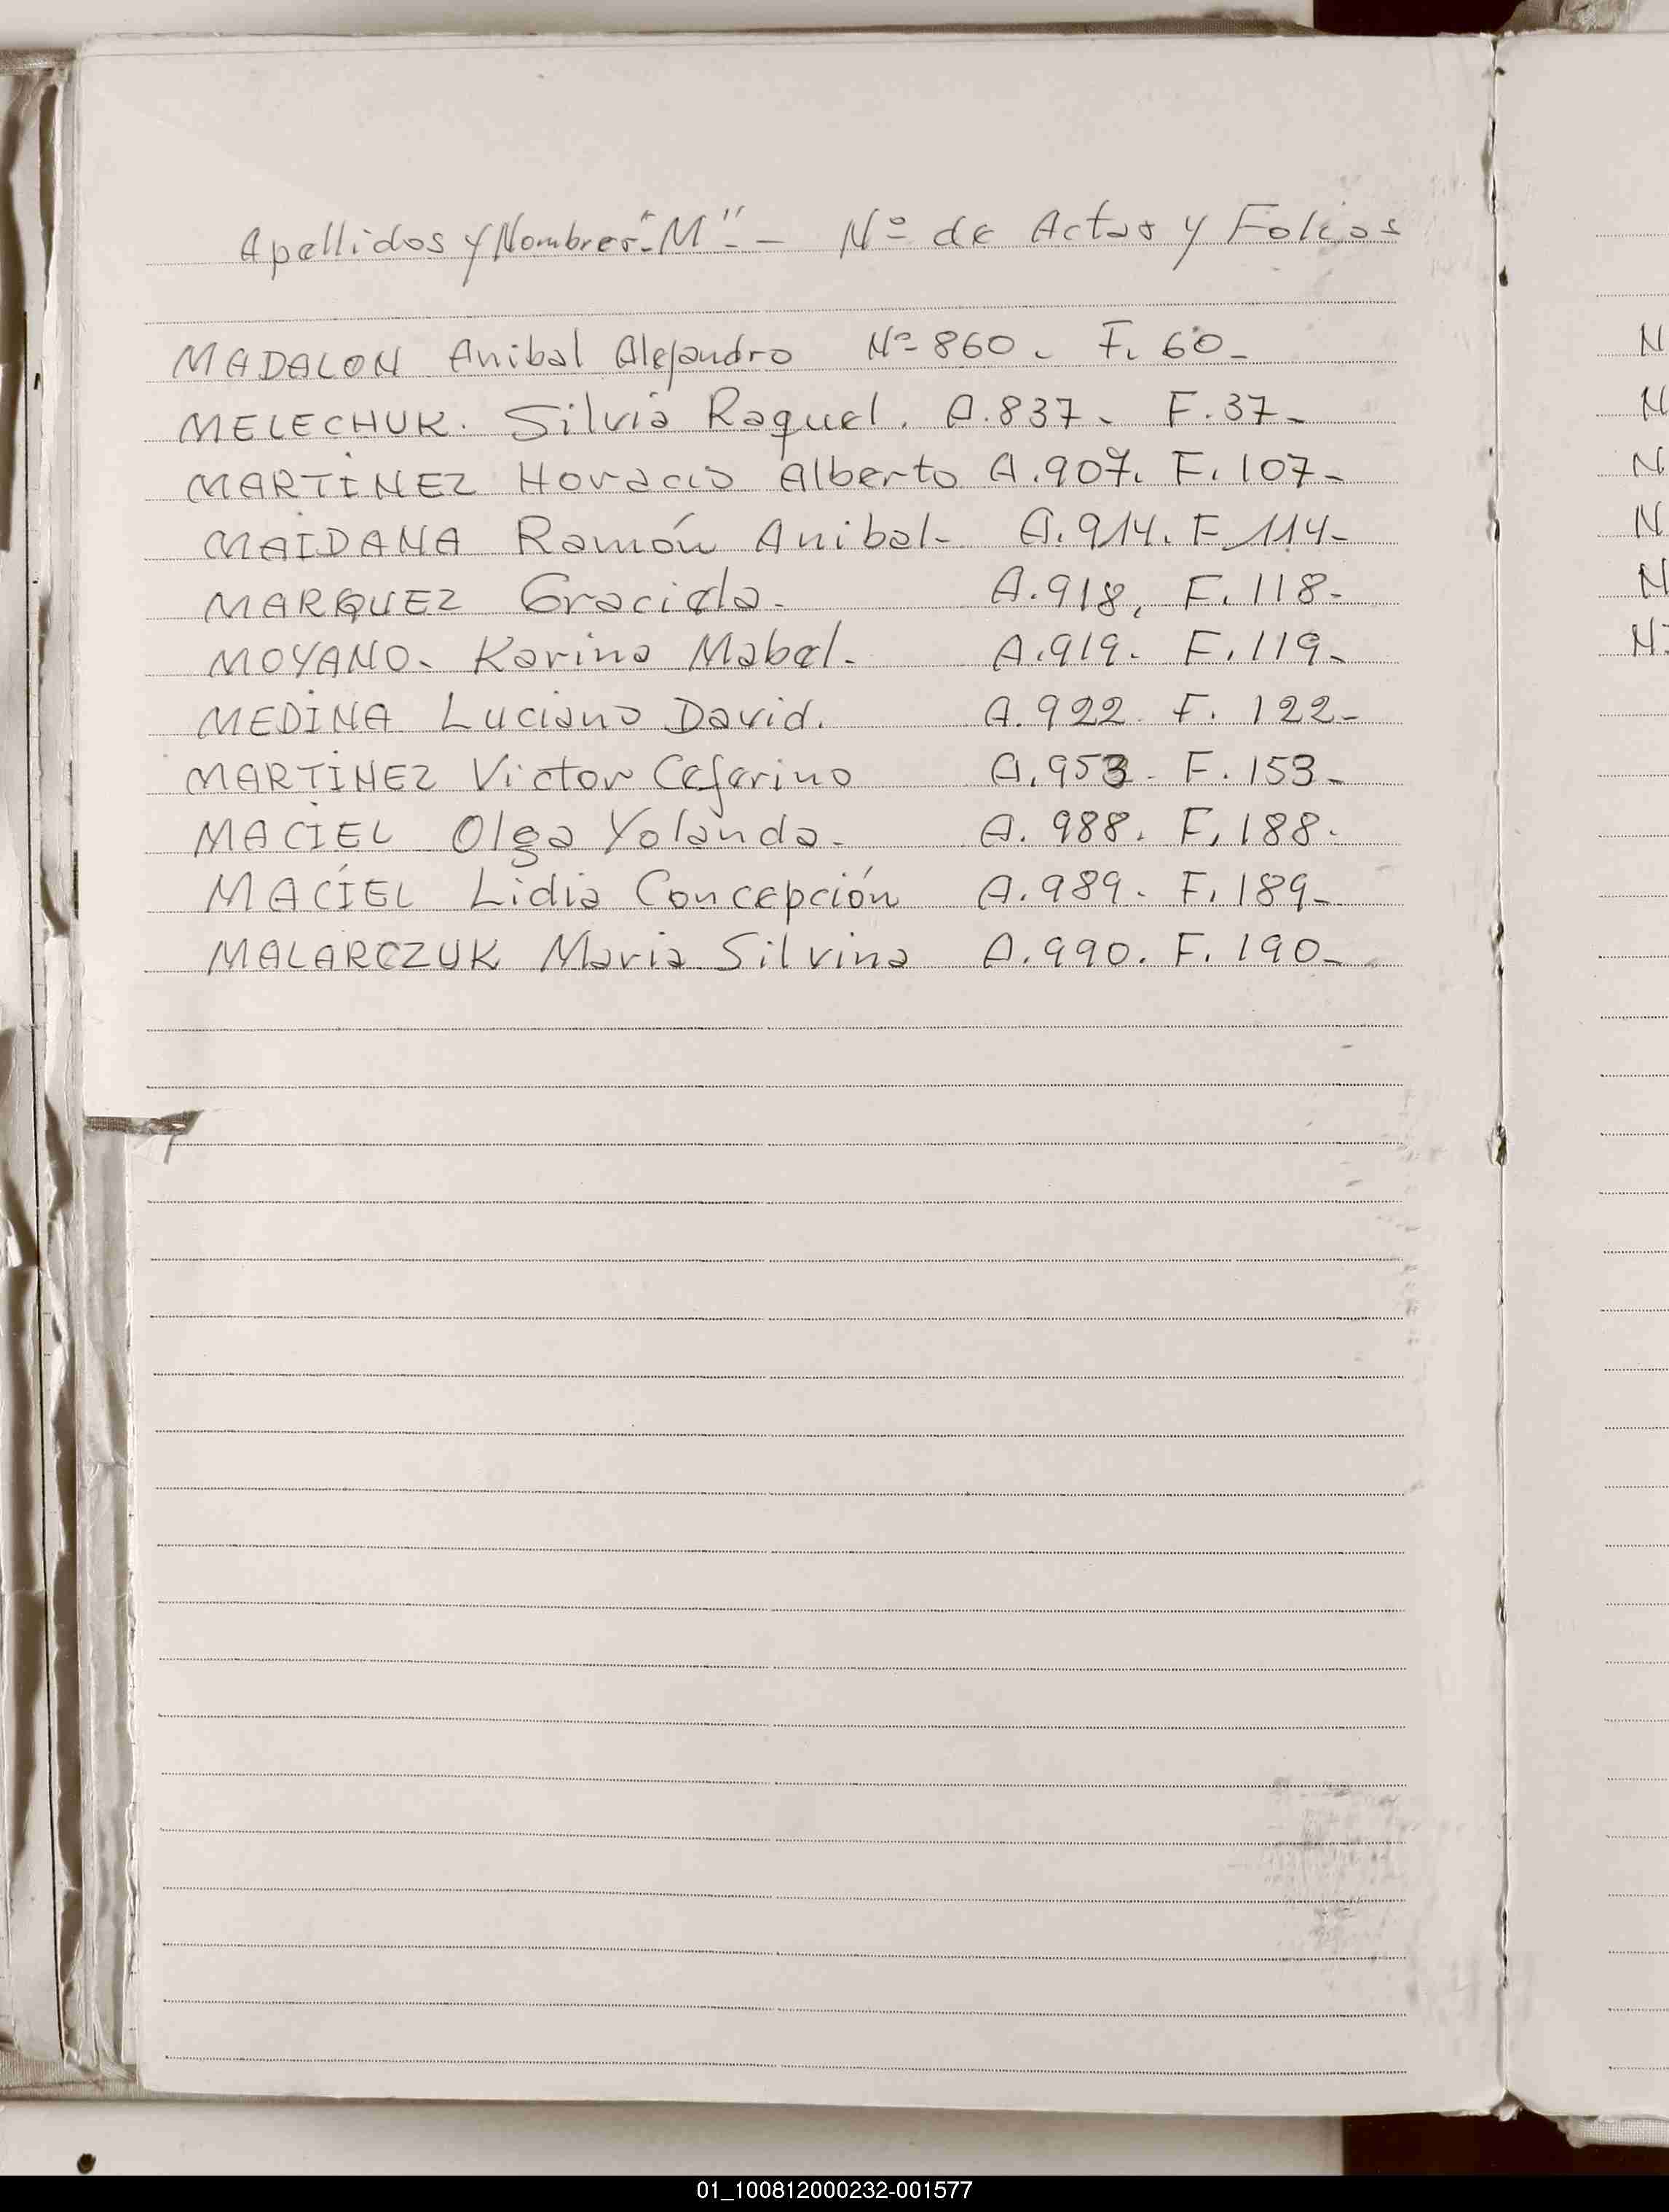 Apellidos y Nombres "M" - Nº de Actas y Folios
MADALON Anibal Alejandro Nº 860. F. 60-
MELECHUK. Silvia Raquel. A. 837- F. 37-
MARTINEZ Horacio Alberto A. 907. F. 107-
MAIDANA Ramón Anibal- A. 914. F. 114-
MARQUEZ Graciela- A. 918, F. 118-
MOYANO- Karina Mabel- A. 919- F. 119-
MEDINA Luciano David. A. 922- F. 122-
MARTINEZ Victor Ceferino A. 953- F. 153-
MACIEL Olga Yolanda- A. 988. F. 188-
MACÍEL Lidia Concepción A. 989- F. 189-
MALARCZUK Maria Silvina A. 990. F. 190-
N
N
N
N
N
N
01_100812000232-001577